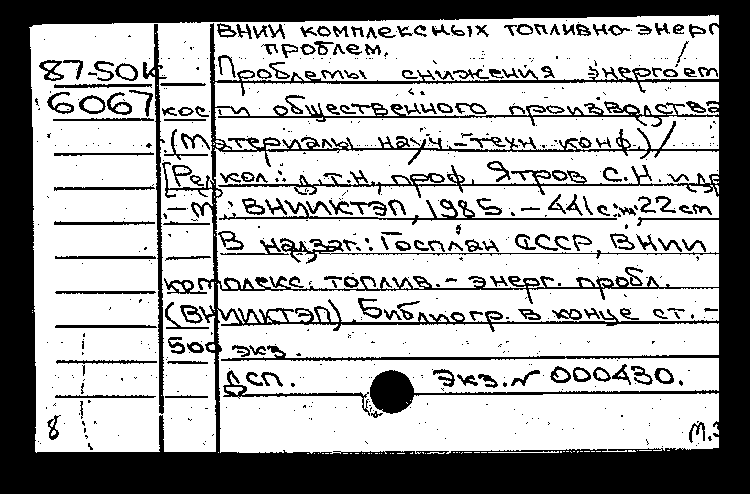 ВНИИ комплексных топливно-энерг
проблем.
87-50к Проблемы снижения энергоем
6067 кости общественного производства
(Материалы науч.-техн. конф.)/
[Редкол.: д.т.н., проф. Ятров С.Н. и др
.-М.: ВНИИКТЭП, 1985.-441с.; 22 см
В надзаг.: Госплан СССР, ВНИИ
комплекс. топлив.-энерг. пробл.
(ВНИИКТЭП). Библиогр. в конце ст. -
500 экз.
Дсп. Экз. № 000430.
8 М.З